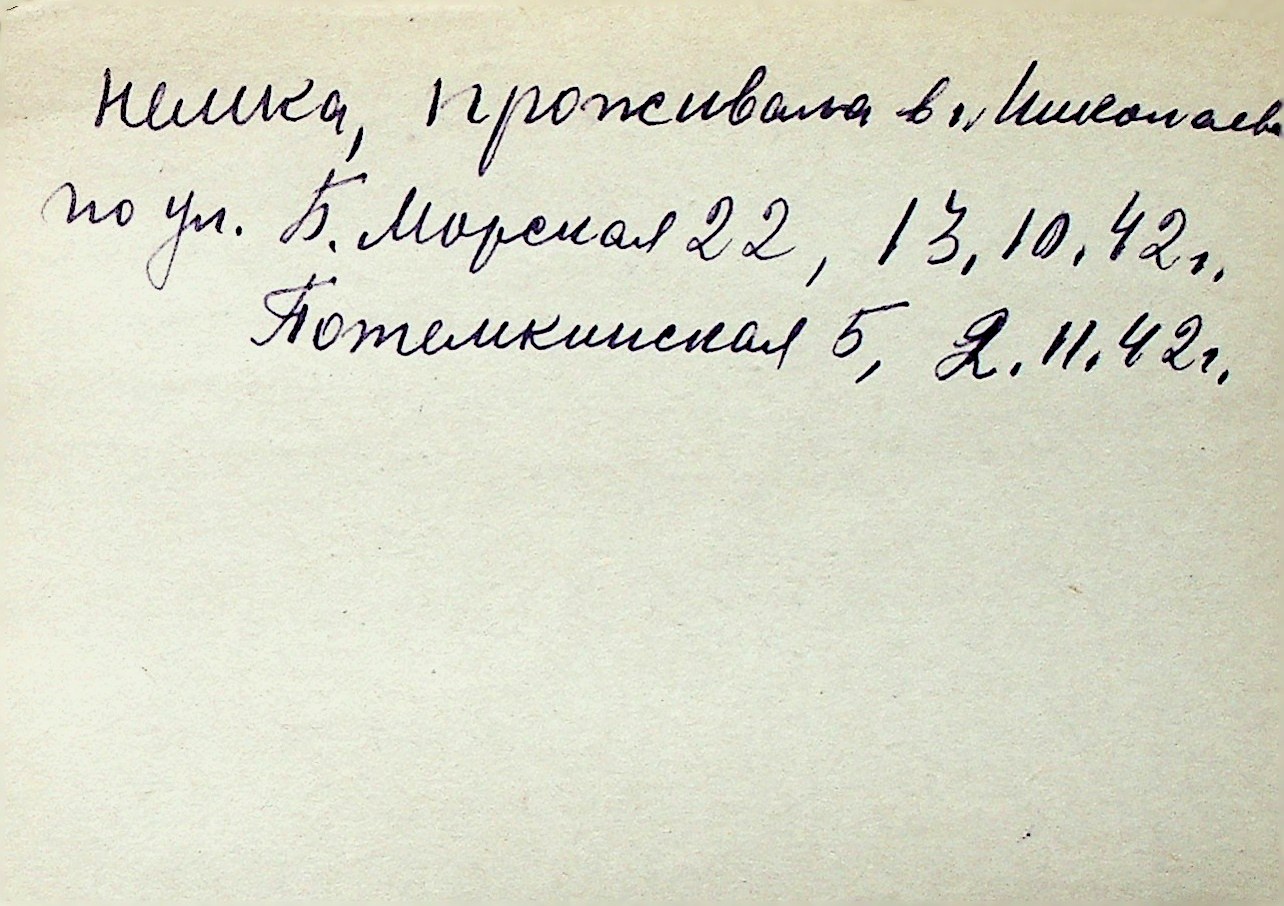 немка, проживала в г. Николаеве
по ул. Б. Морская 22, 13.10.42г.
Потемкинская 5, 2.11.42г.